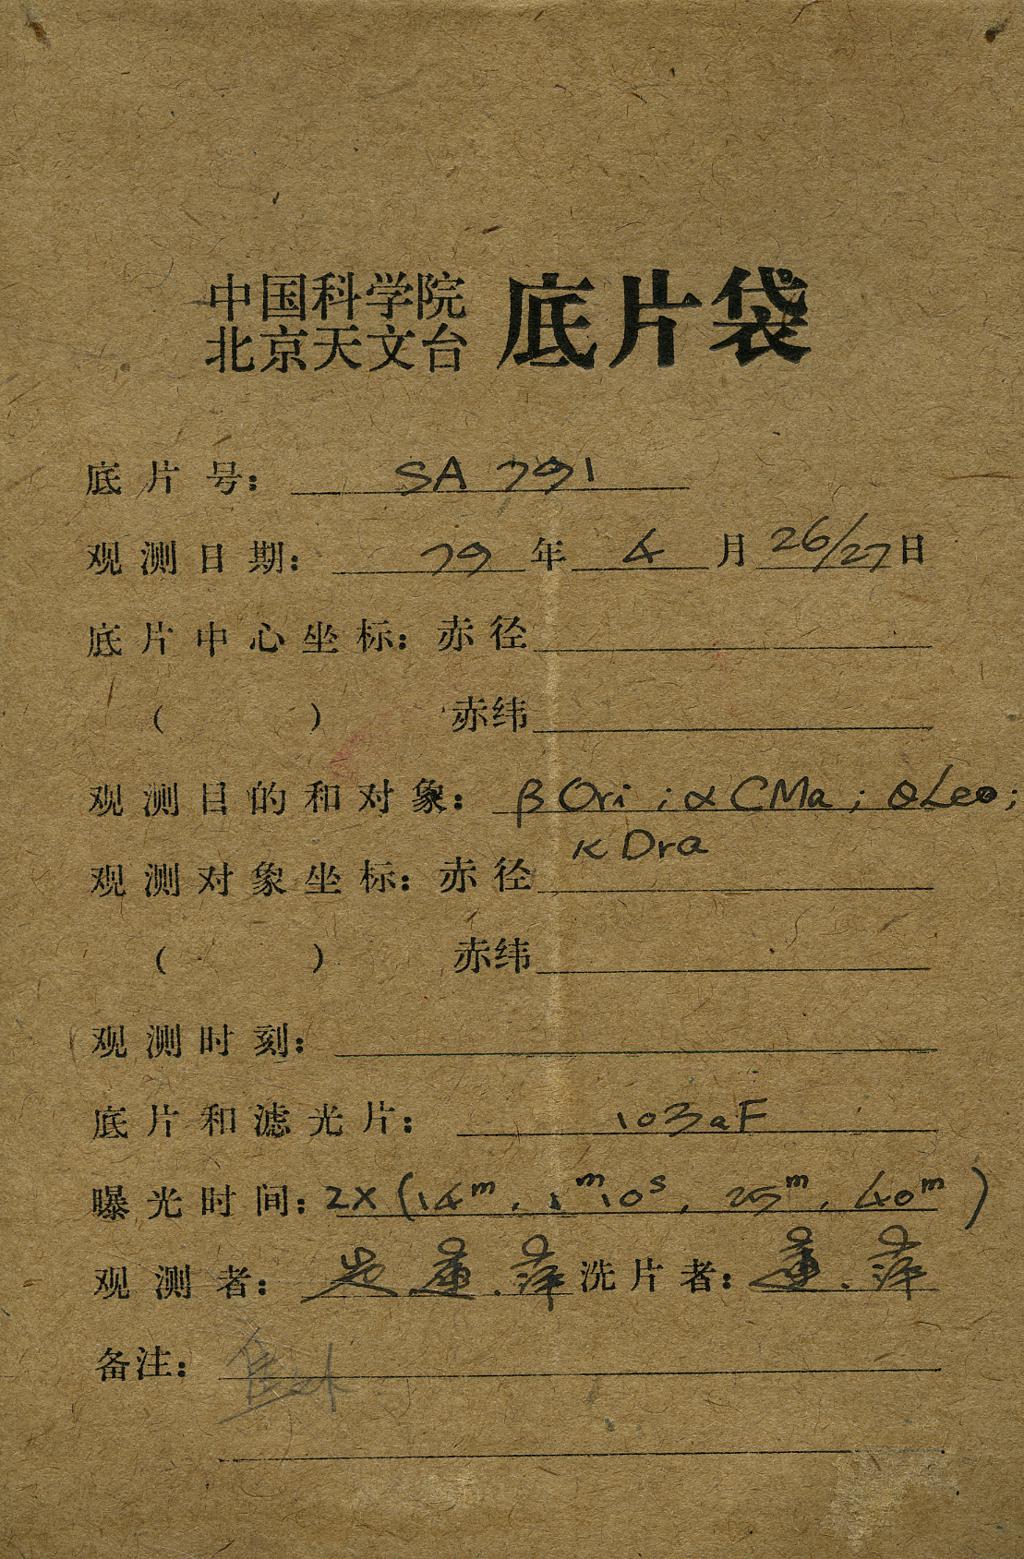 中国科学院
北京天文台
底片袋
底片号： SA 791
观测日期： 79 年 4 月 26/27 日
底片中心坐标：赤径
（ ） 赤纬
观测目的和对象： β Ori ; α CMa ; θ Leo ;
κ Dra
观测对象坐标：赤径
（ ） 赤纬
观测时刻：
底片和滤光片： 103aF
曝光时间： 2×(14ᵐ, 1ᵐ10ˢ, 25ᵐ, 40ᵐ)
观测者： 萍 洗片者： 萍
备注：